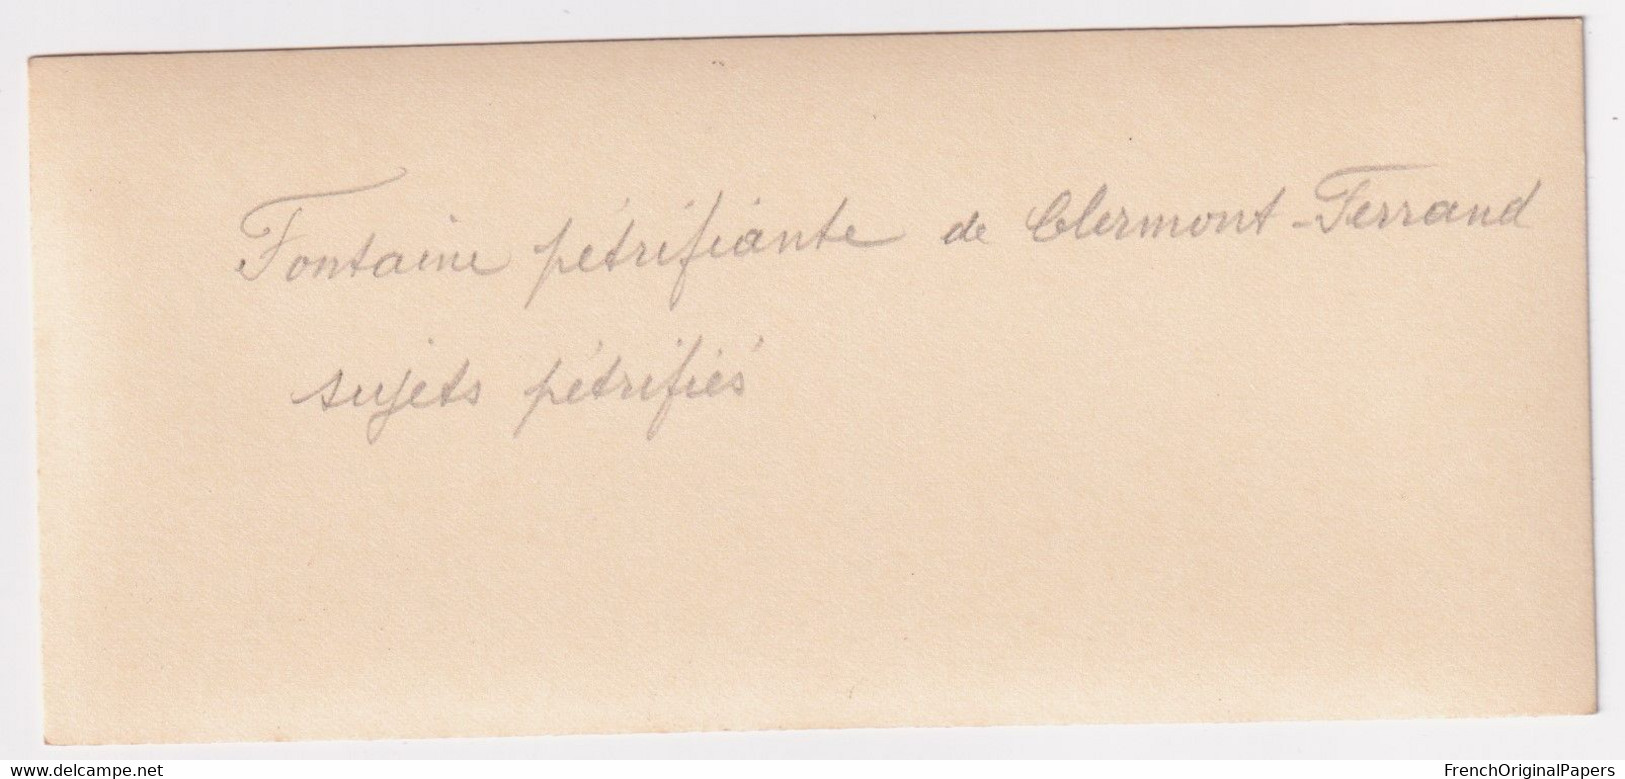 Fontaine pétrifiante de Clermont-Ferrand
sujets pétrifiés
www.delcampe.net
FrenchOriginalPapers